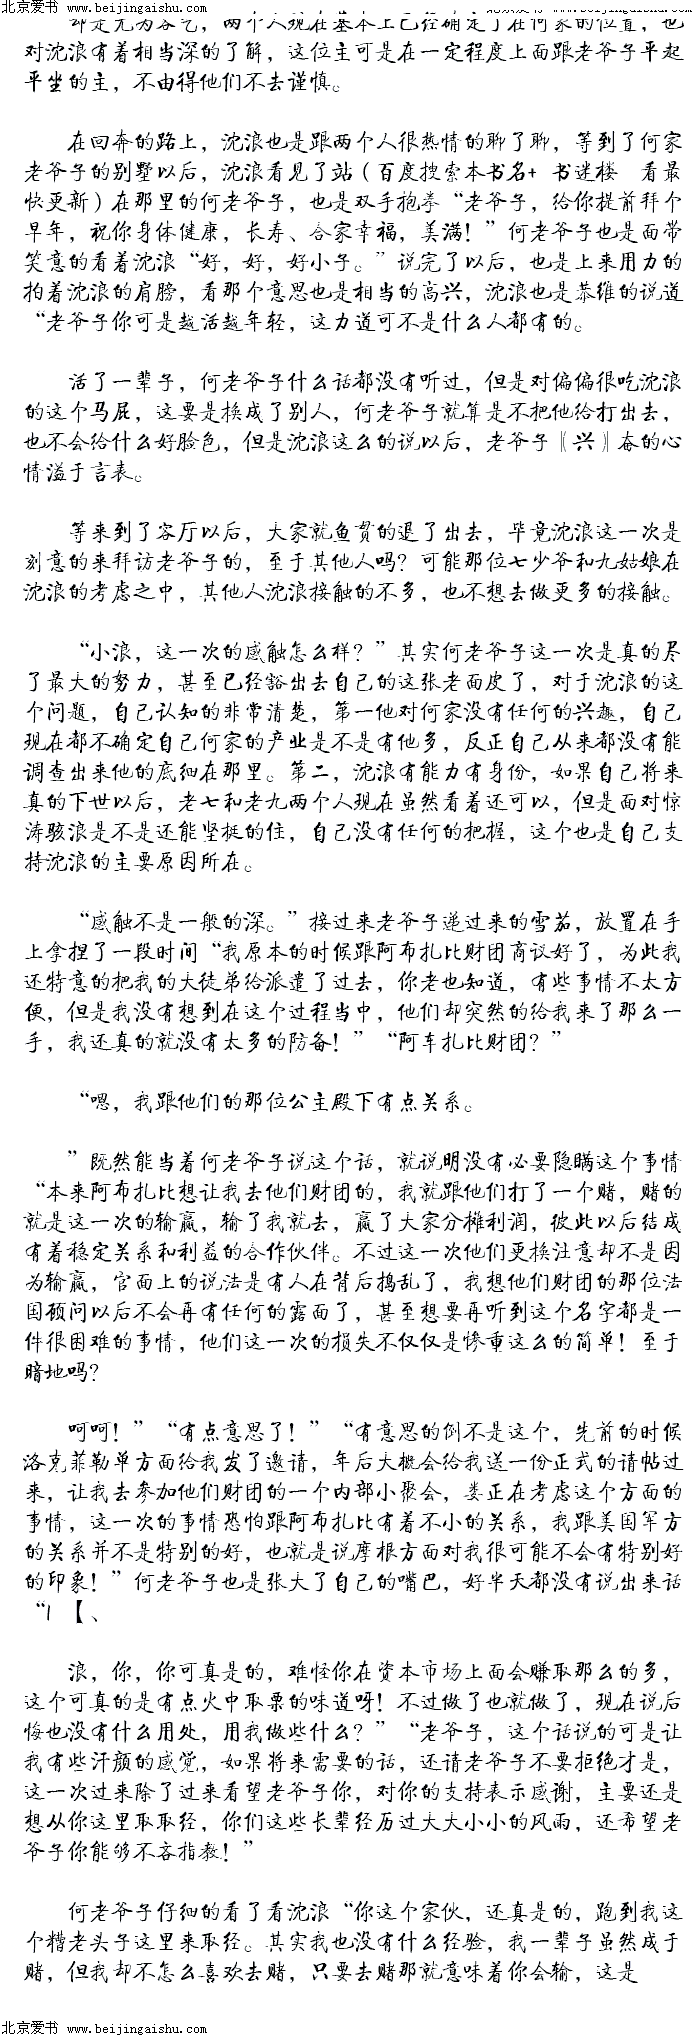 北京爱书 www.beijingaishu.com
北京爱书 www.beijingaishu.com
却是尤为客气，两个人现在基本上已经确定了在何家的位置，也
对沈浪有着相当深的了解，这位主可是在一定程度上面跟老爷子平起
平坐的主，不由得他们不去谨慎。
在回奔的路上，沈浪也是跟两个人很热情的聊了聊，等到了何家
老爷子的别墅以后，沈浪看见了站（百度搜索本书名+ 书迷楼 看最
快更新）在那里的何老爷子，也是双手抱拳“老爷子，给你提前拜个
早年，祝你身体健康，长寿、合家幸福，美满！”何老爷子也是面带
笑意的看着沈浪“好，好，好小子。”说完了以后，也是上来用力的
拍着沈浪的肩膀，看那个意思也是相当的高兴，沈浪也是恭维的说道
“老爷子你可是越活越年轻，这力道可不是什么人都有的。
活了一辈子，何老爷子什么话都没有听过，但是对偏偏很吃沈浪
的这个马屁，这要是换成了别人，何老爷子就算是不把他给打出去，
也不会给什么好脸色，但是沈浪这么的说以后，老爷子〖兴〗奋的心
情溢于言表。
等来到了客厅以后，大家就鱼贯的退了出去，毕竟沈浪这一次是
刻意的来拜访老爷子的，至于其他人吗？可能那位七少爷和九姑娘在
沈浪的考虑之中，其他人沈浪接触的不多，也不想去做更多的接触。
“小浪，这一次的感触怎么样？”其实何老爷子这一次是真的尽
了最大的努力，甚至已经豁出去自己的这张老面皮了，对于沈浪的这
个问题，自己认知的非常清楚，第一他对何家没有任何的兴趣，自己
现在都不确定自己何家的产业是不是有他多，反正自己从来都没有能
调查出来他的底细在那里。第二，沈浪有能力有身份，如果自己将来
真的下世以后，老七和老九两个人现在虽然看着还可以，但是面对惊
涛骇浪是不是还能坚挺的住，自己没有任何的把握，这个也是自己支
持沈浪的主要原因所在。
“感触不是一般的深。”接过来老爷子递过来的雪茄，放置在手
上拿捏了一段时间“我原本的时候跟阿布扎比财团商议好了，为此我
还特意的把我的大徒弟给派遣了过去，你老也知道，有些事情不太方
便，但是我没有想到在这个过程当中，他们却突然的给我来了那么一
手，我还真的就没有太多的防备！”“阿车扎比财团？”
“嗯，我跟他们的那位公主殿下有点关系。
”既然能当着何老爷子说这个话，就说明没有必要隐瞒这个事情
“本来阿布扎比想让我去他们财团的，我就跟他们打了一个赌，赌的
就是这一次的输赢，输了我就去，赢了大家分摊利润，彼此以后结成
有着稳定关系和利益的合作伙伴。不过这一次他们更换注意却不是因
为输赢，官面上的说法是有人在背后捣乱了，我想他们财团的那位法
国顾问以后不会再有任何的露面了，甚至想要再听到这个名字都是一
件很困难的事情，他们这一次的损失不仅仅是惨重这么的简单！至于
暗地吗？
呵呵！”“有点意思了！”“有意思的倒不是这个，先前的时候
洛克菲勒单方面给我发了邀请，年后大概会给我送一份正式的请帖过
来，让我去参加他们财团的一个内部小聚会，娄正在考虑这个方面的
事情，这一次的事情恐怕跟阿布扎比有着不小的关系，我跟美国军方
的关系并不是特别的好，也就是说摩根方面对我很可能不会有特别好
的印象！”何老爷子也是张大了自己的嘴巴，好半天都没有说出来话
“1 【、
浪，你，你可真是的，难怪你在资本市场上面会赚取那么的多，
这个可真的是有点火中取栗的味道呀！不过做了也就做了，现在说后
悔也没有什么用处，用我做些什么？”“老爷子，这个话说的可是让
我有些汗颜的感觉，如果将来需要的话，还请老爷子不要拒绝才是，
这一次过来除了过来看望老爷子你，对你的支持表示感谢，主要还是
想从你这里取取经，你们这些长辈经历过大大小小的风雨，还希望老
爷子你能够不吝指教！”
何老爷子仔细的看了看沈浪“你这个家伙，还真是的，跑到我这
个糟老头子这里来取经。其实我也没有什么经验，我一辈子虽然成于
赌，但我却不怎么喜欢去赌，只要去赌那就意味着你会输，这是
北京爱书 www.beijingaishu.com